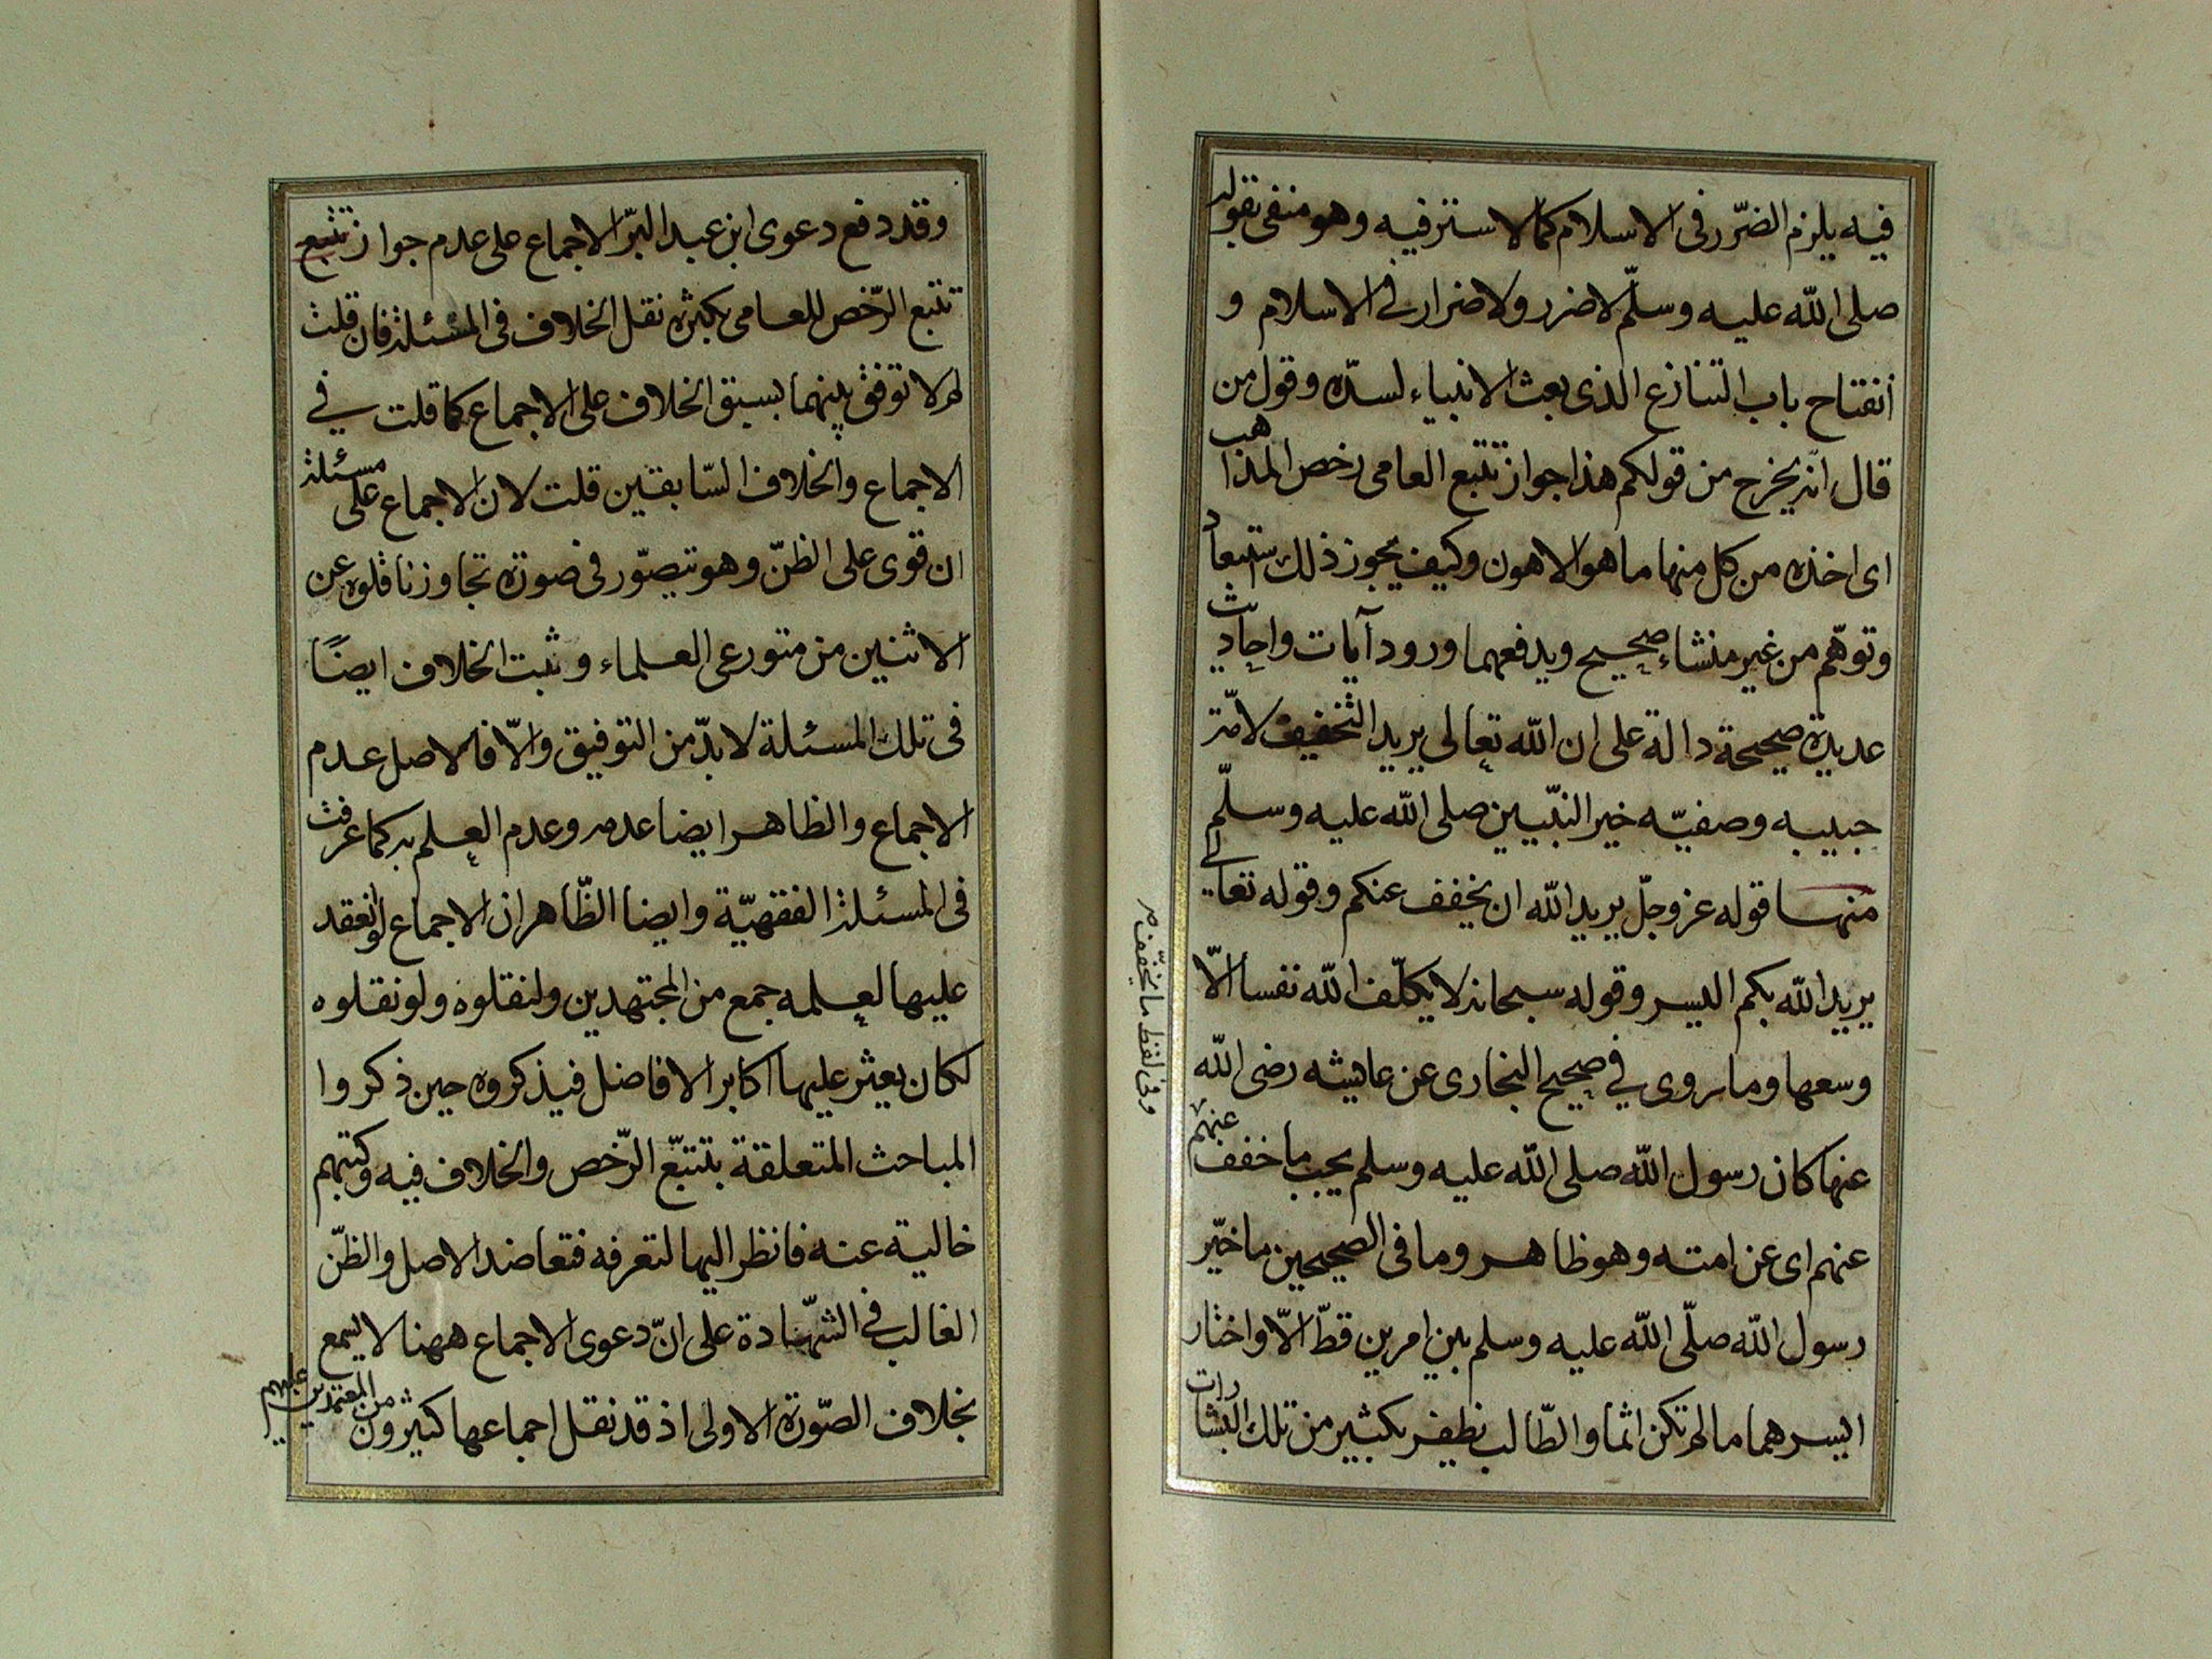 فيه يلزم الضّرر فى الاسلام كما لا ستر فيه وهو منفى بقوله
صلى اللّه عليه وسلّم لا ضرر ولا ضرار فى الاسلام و
انفتاح باب التنازع الذى بعث الانبياء لسدّه وقول من
قال انّه يخرج من قولكم هذا جواز تتبع العامى رخص المذاهب
اى اخذه من كل منها ما هو الاهون وكيف يجوز ذلك ستبعاد
وتوهّم من غير منشاء صحيح ويدفعهما ورود آيات واحاديث
عديدة صحيحة دالة على ان اللّه تعالى يريد التخفيف لامّة
حبيبه وصفيّه خير النبّيين صلى اللّه عليه وسلّم
منها قوله عز وجلّ يريد اللّه ان يخفف عنكم وقوله تعالى
يريد اللّه بكم اليسر وقوله سبحانه لا يكلّف اللّه نفسا الّا
وسعها وما روى في صحيح البخارى عن عايشه رضى اللّه
عنها كان رسول اللّه صلى اللّه عليه وسلم يحب ما خفف عنهم
عنهم اى عن امته وهو ظاهر وما فى الصحيحين ما خيّر
رسول اللّه صلّى اللّه عليه وسلم بين امرين قطّ الّا واختار
ايسرهما ما لم تكن اثما والطّالب يظفر بكثير من تلك البشارات
وفى لفظ ما يخّفف
وقد دفع دعوى ابن عبد البرّ الاجماع على عدم جواز تتبع
تتبع الرّخص للعامى بكثرة نقل الخلاف فى المسئلة فان قلت
لم لا توفق بينهما بسبق الخلاف على الاجماع كما قلت في
الاجماع والخلاف السّابقين قلت لان الاجماع على مسئلة
ان قوى على الظنّ وهو يتصوّر فى صورة تجاوز ناقلوه عن
الاثنين من متورعى العلماء وثبت الخلاف ايضًا
فى تلك المسئلة لا بدّ من التوفيق والّا فالاصل عدم
الاجماع والظاهر ايضا عدمه وعدم العلم به كما عرفت
فى المسئلة الفقهيّة وايضا الظّاهر ان الاجماع لو انعقد
عليها لعلمه جمع من المجتهدين ولنقلوه ولو نقلوه
لكان يعثر عليها اكابر الافاضل فيذكروه حين ذكروا
المباحث المتعلقة بتتبّع الرّخص والخلاف فيه وكتبهم
خالية عنه فانظر اليها لتعرفه فتعاضد الاصل والظنّ
الغالب فى الشهّادة على انّ دعوى الاجماع ههنا لا يسمع
بخلاف الصّورة الاولى اذ قد نقل اجماعها كثيرون من المعتمدين عليهم